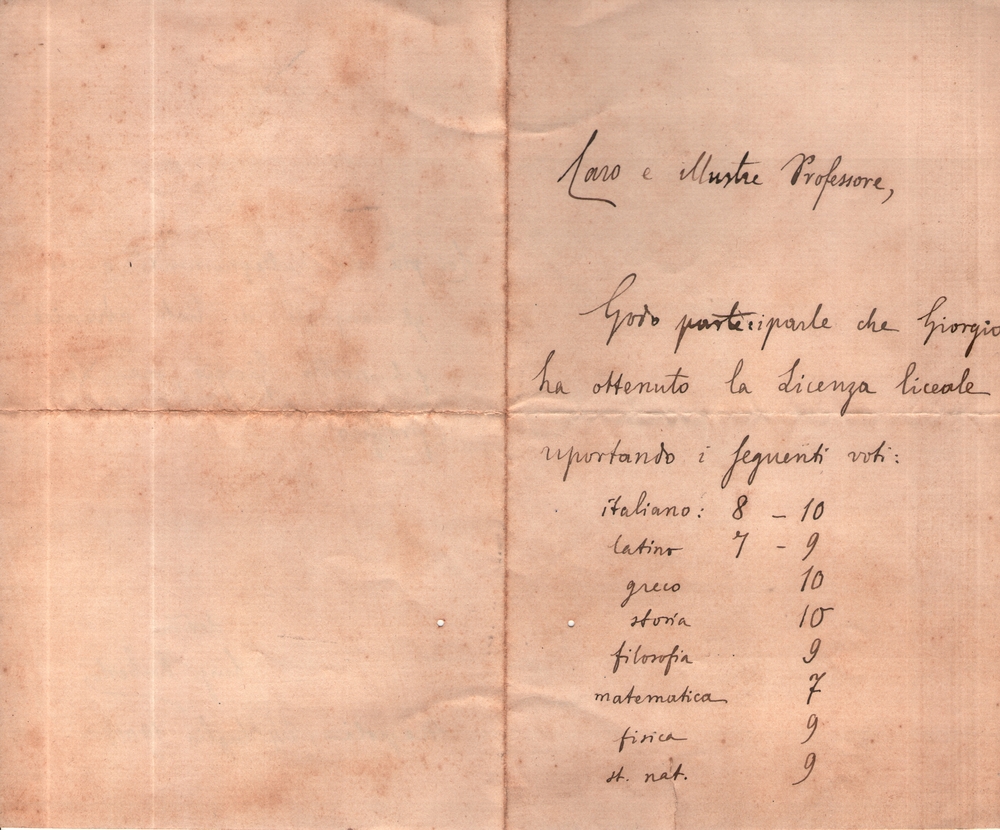 Caro e illustre Professore,
Godo parteciparle che Giorgio
ha ottenuto la Licenza liceale
riportando i seguenti voti:
italiano: 8 - 10
latino 7 - 9
greco 10
storia 10
filosofia 9
matematica 7
fisica 9
st. nat. 9